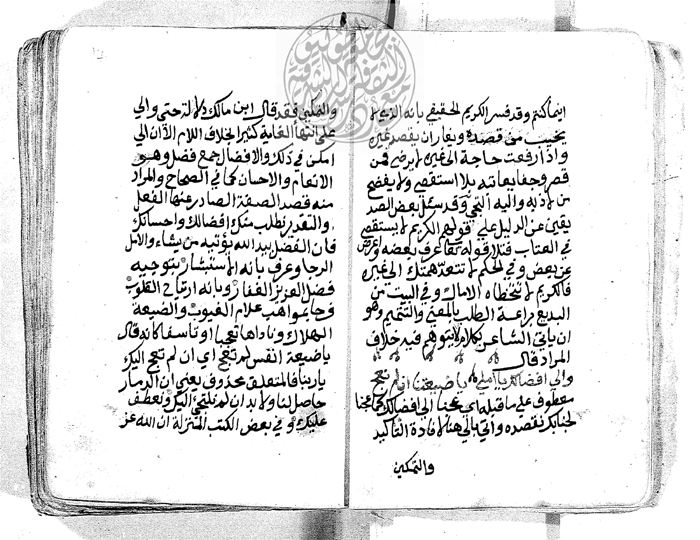 اينما كنتم وقد فسر الكريم الحقيقي بانه الذي لا
يخيب من قصده ويغار ان يقصد غيره
واذا رفعت حاجة الى غيره لا يرضى فمن
قصر وجفا يعاتبه بلا استقصى ولا يفضح
من لاذ به واليه التجى وقد سئل بعض الصد
يقين عن الدليل على قولهم الكريم لا يستقصى
في العتاب فتلا قوله تعالى عرف بعضه واعرض
عن بعض وفي الحكم لا تتعد همتك الى غيره
فالكريم لا تتخطاه الامال وفي البيت من
البديع براعة الطلب بالمعنى والتتميم وهو
ان ياتي الشاعر بكلام لا يتوهم فيه خلاف
المراد قال
والى افضالك يا املي يا ضيعتنا ان لم نعج
معطوف على ما قبله اي عجنا الى افضالك كما عجنا
لجنابك نقصده واتى بالى هنا لافادة التاكيد
والتمكين
والتمكين فقد قال ابن مالك دلالة حتى والى
على انتها الغاية كثير الخلاف اللام الا ان الى
امكن في ذلك والافضال جمع فضل وهو
الانعام والاحسان كما في الصحاح والمراد
منه قصد الصفة الصادر عنها الفعل
والتقدير نطلب منك افضالك واحسانك
فان الفضل بيد الله يؤتيه من يشاء والامل
الرجا وعرف بانه الاستبشار بتوجيه
فضل العزيز الغفار وبانه ارتياح القلوب
مواهب علام الغيوب والضيعة
الهلاك وناداها تعجبا او تاسفا كانه قال
يا ضيعة انفس لم تعج اي ان لم تعج اليك
يا ربنا فالمتعلق محذوف يعني ان الدمار
حاصل لنا ولا بد ان لم نلتجئ اليك وتعطف
عليك وفي بعض الكتب المنزلة ان الله عز